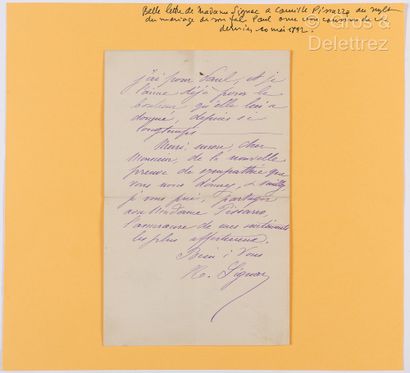 © Gros &
Delettrez
Belle lettre de Madame Signac à Camille Pissarro au sujet
du mariage de son fils Paul avec une cousine de ce
dernier 10 mai 1892.
j'ai pour Paul, et je
l'aime déjà pour le
bonheur qu'elle lui a
donné, depuis si
longtemps
Merci, encore, cher
Monsieur, de la nouvelle
preuve de sympathie que
vous nous donnez, & veuillez
je vous prie, partager
avec Madame Pissarro,
l'assurance de mes sentiments
les plus affectueux.
Bien à Vous
Signac